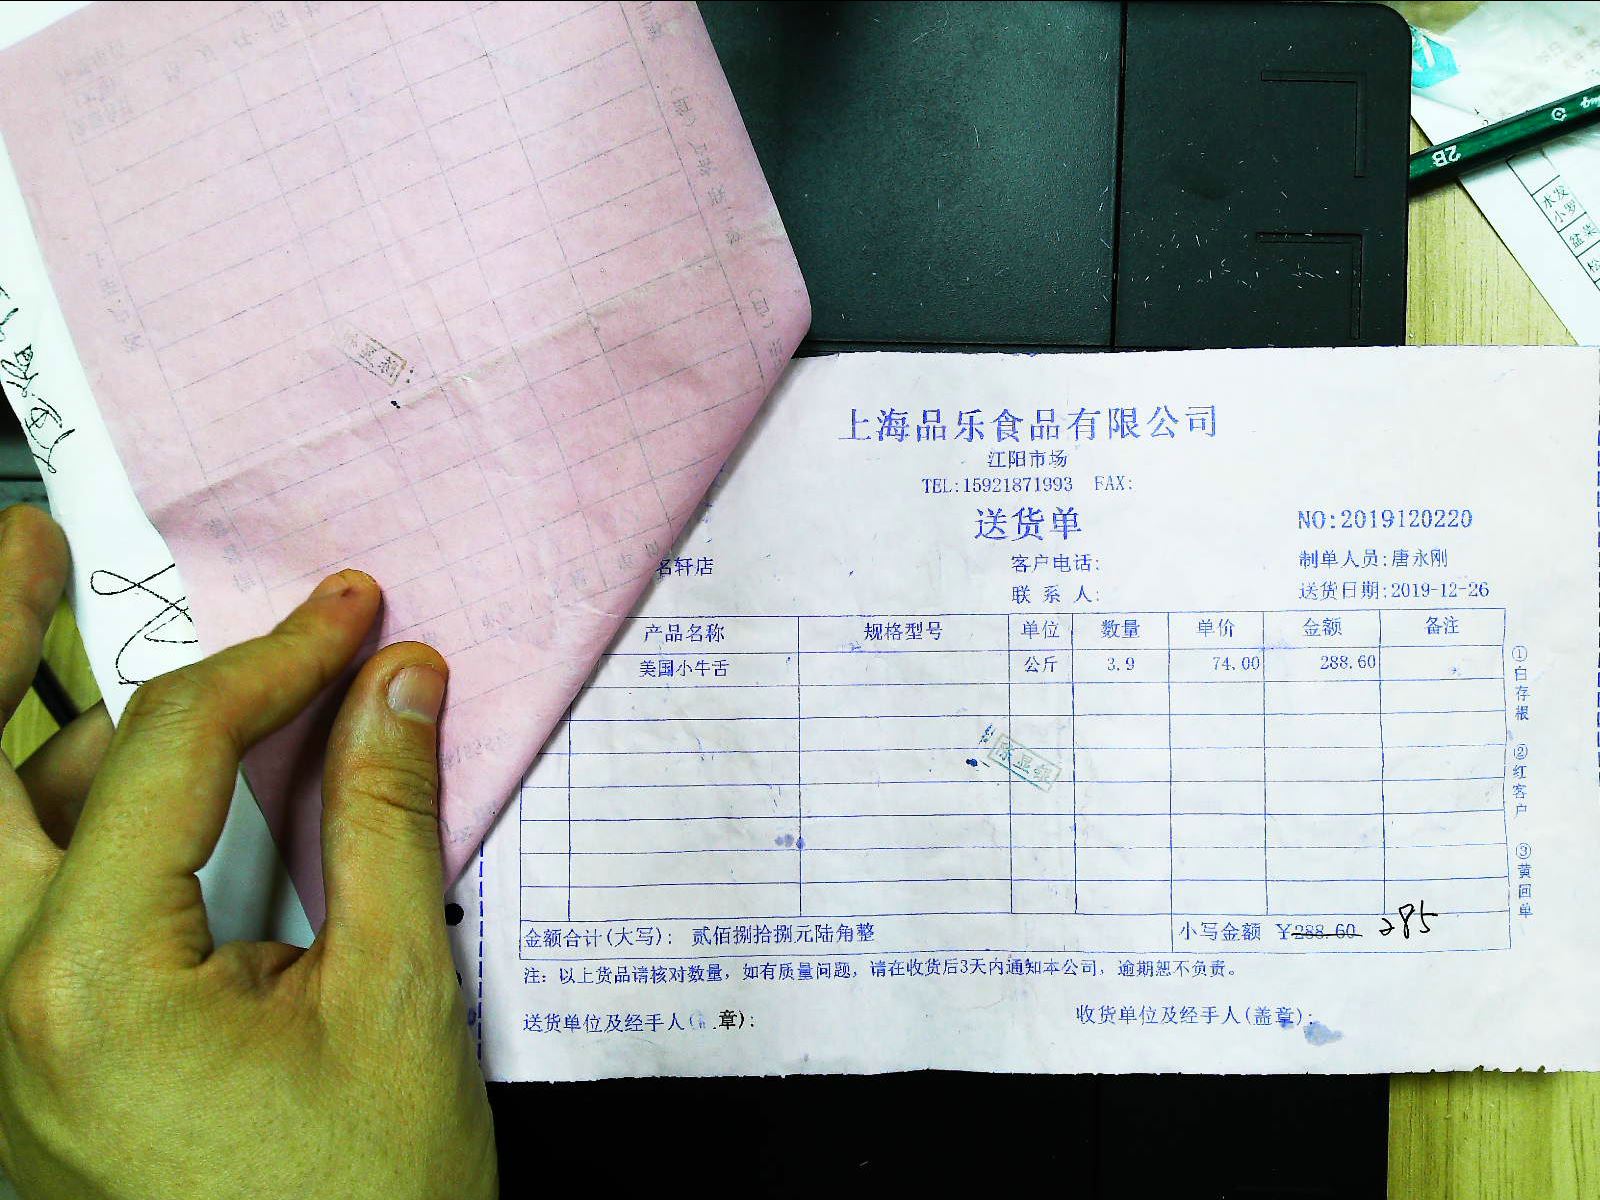 上海品乐食品有限公司
江阳市场
TEL:15921871993 FAX:
送货单
NO:2019120220
名轩店 客户电话: 制单人员:唐永刚
联 系 人: 送货日期:2019-12-26
产品名称 规格型号 单位 数量 单价 金额 备注
美国小牛舌 公斤 3.9 74.00 288.60
①白存根 ②红客户 ③黄回单
金额合计(大写): 贰佰捌拾捌元陆角整 小写金额 ¥288.60 285
注: 以上货品请核对数量, 如有质量问题, 请在收货后3天内通知本公司, 逾期恕不负责。
送货单位及经手人( 章): 收货单位及经手人(盖章):
2B
水发
小罗
盆菜
松